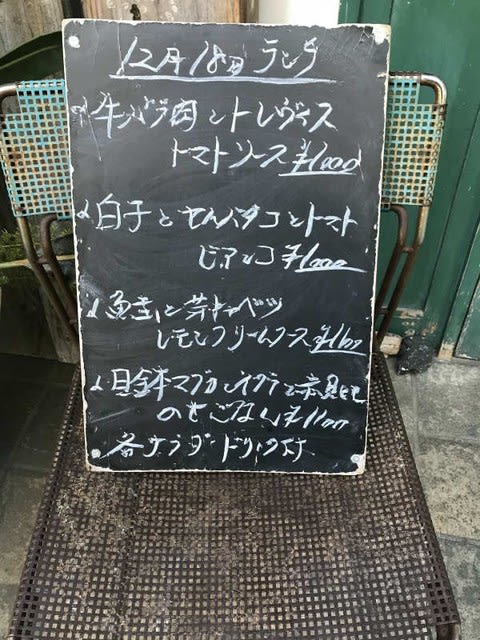 12月18日 ランチ
牛バラ肉とトレヴィス
トマトソース ¥1000
白子とせんバタコとトマト
ビアンコ ¥1000
と芽キャベツ
レモンクリームソース ¥1100
マグロ イクラと
のせごはん ¥1100
各サラダ・ドリンク付